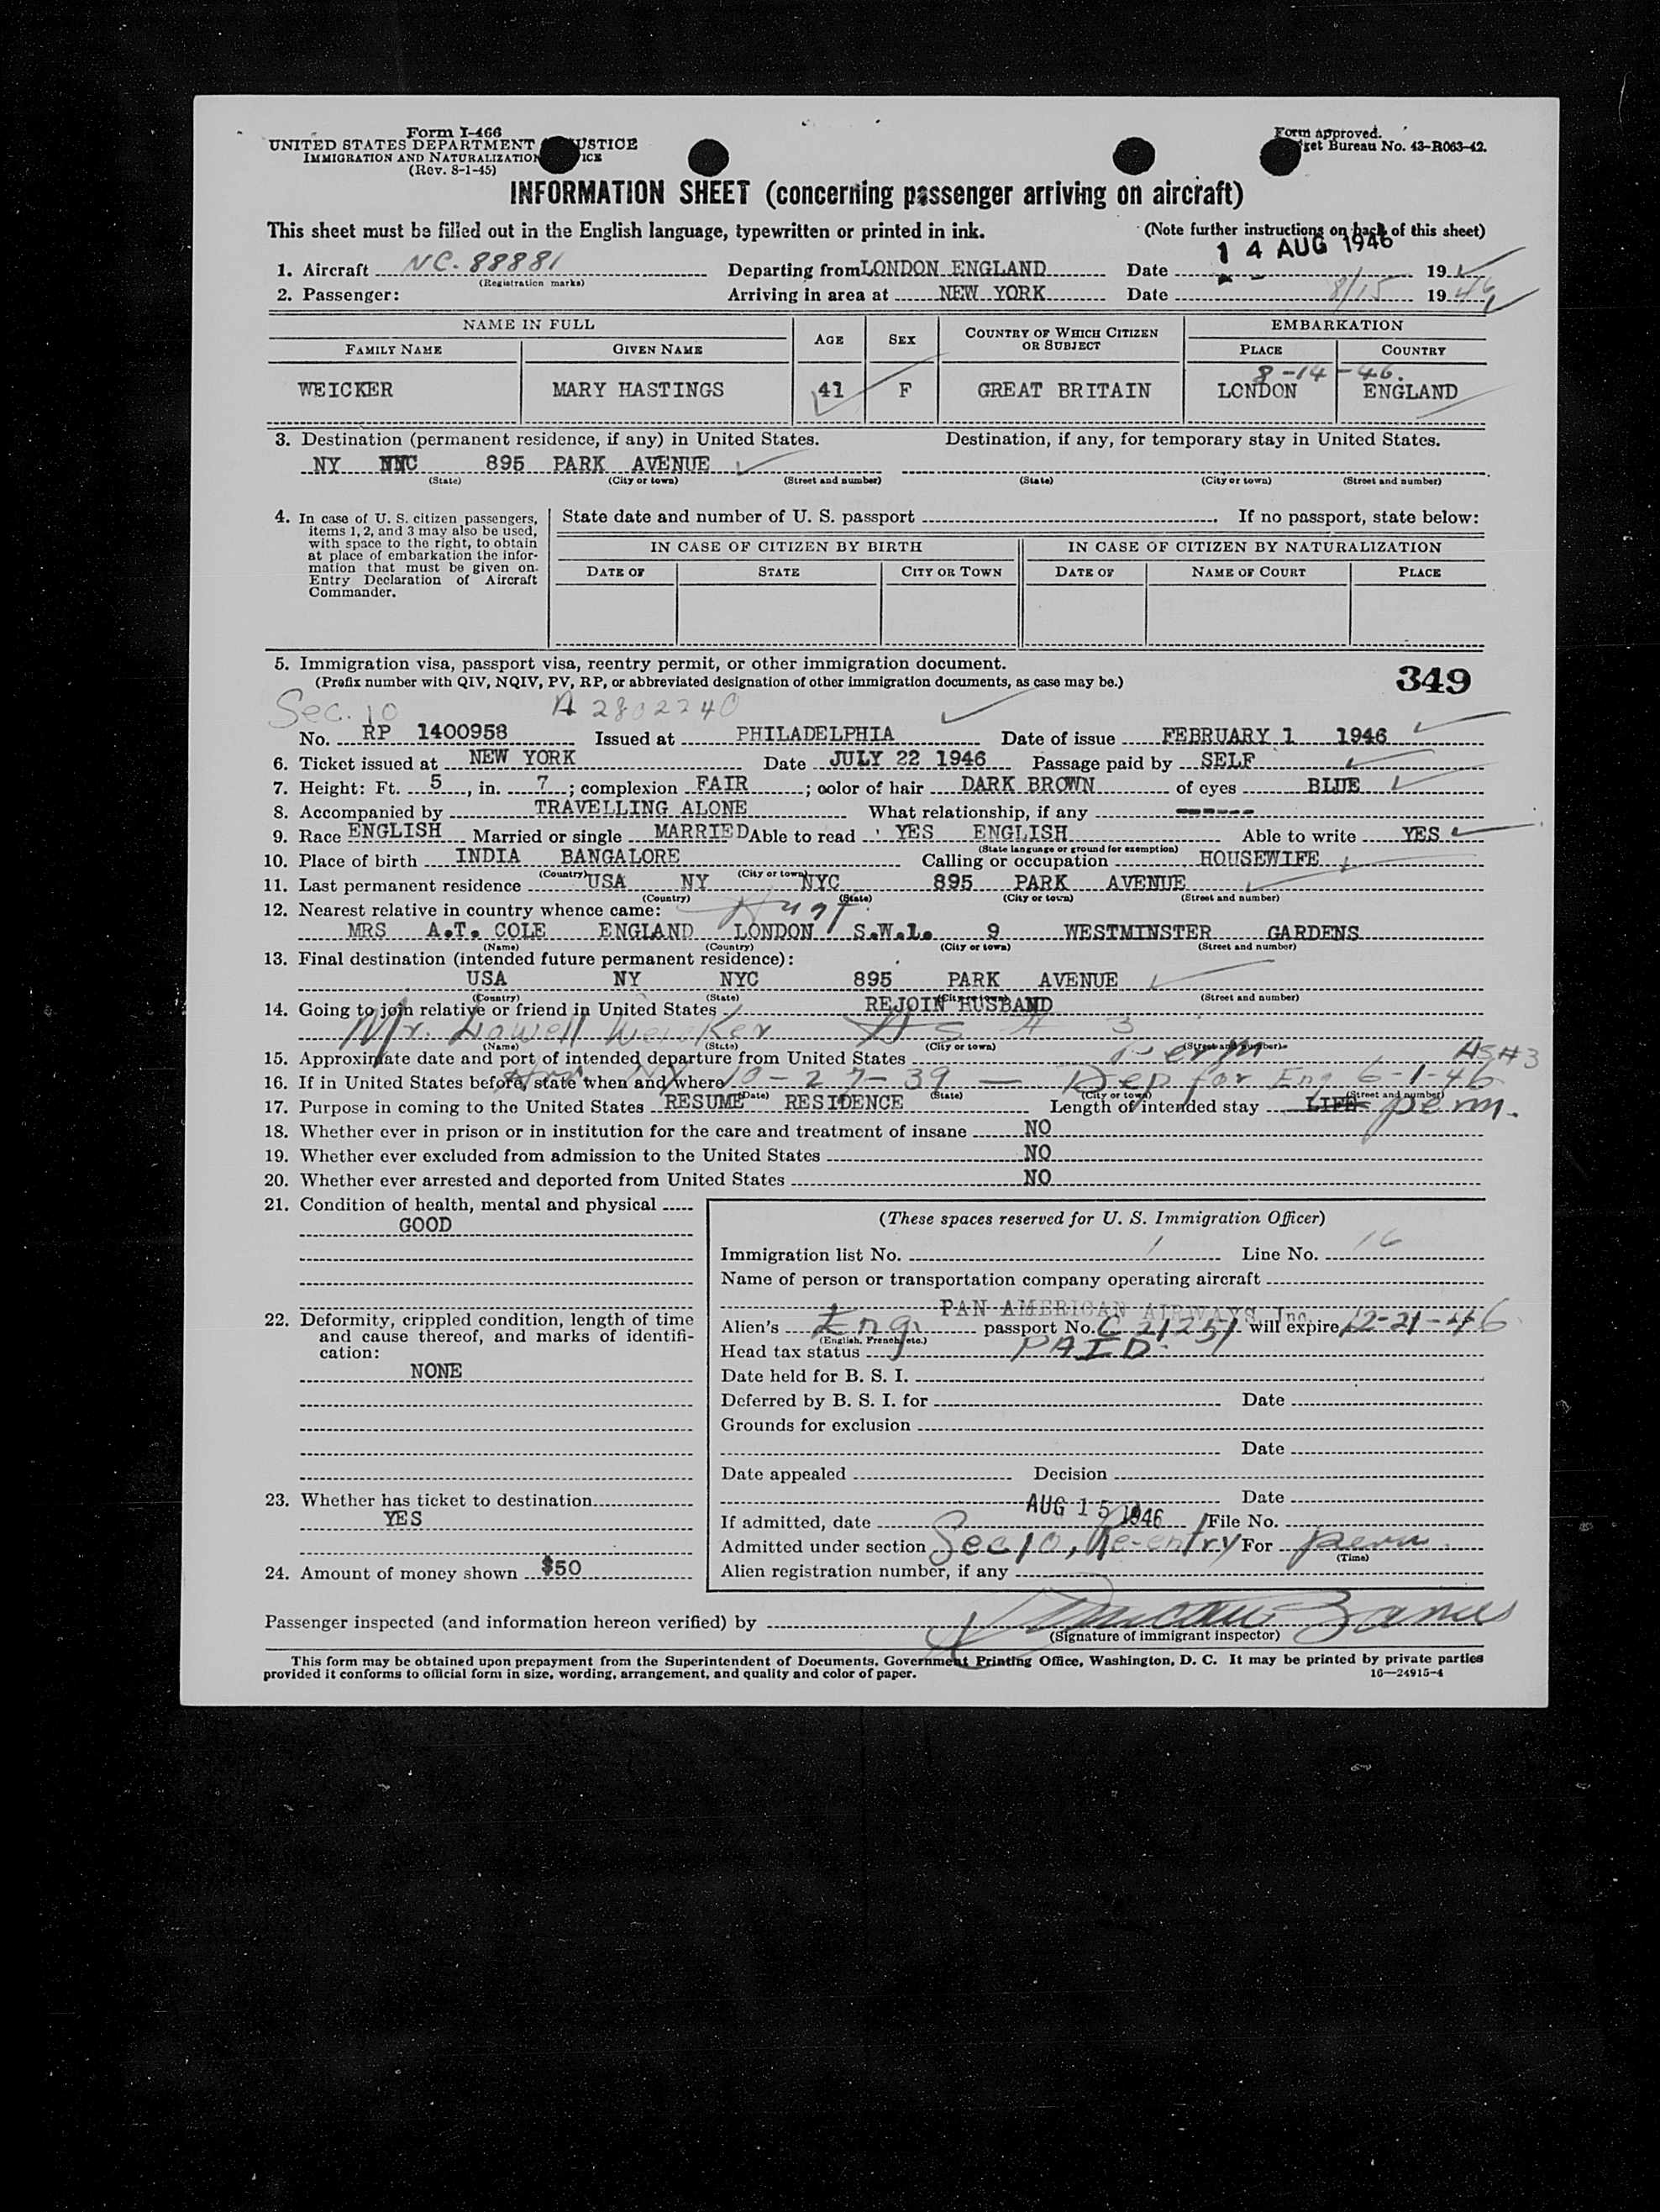 Form I-466
UNITED STATES DEPARTMENT USTICE
IMMIGRATION AND NATURALIZATION ICE
(Rev. 8-1-45)
Form approved.
get Bureau No. 43-R063-42.
INFORMATION SHEET (concerning passenger arriving on aircraft)
This sheet must be filled out in the English language, typewritten or printed in ink. (Note further instructions on back of this sheet)
14 AUG 1946
1. Aircraft NC-88881 Departing from LONDON ENGLAND Date 19
(Registration marks)
2. Passenger: Arriving in area at NEW YORK Date 8/15 1946
NAME IN FULL AGE SEX COUNTRY OF WHICH CITIZEN OR SUBJECT EMBARKATION
FAMILY NAME GIVEN NAME PLACE COUNTRY
8-14-46.
WEICKER MARY HASTINGS 41 F GREAT BRITAIN LONDON ENGLAND
3. Destination (permanent residence, if any) in United States. Destination, if any, for temporary stay in United States.
NY NYC 895 PARK AVENUE
(State) (City or town) (Street and number) (State) (City or town) (Street and number)
4. In case of U. S. citizen passengers, items 1, 2, and 3 may also be used, with space to the right, to obtain at place of embarkation the information that must be given on Entry Declaration of Aircraft Commander.
State date and number of U. S. passport . If no passport, state below:
IN CASE OF CITIZEN BY BIRTH IN CASE OF CITIZEN BY NATURALIZATION
DATE OF STATE CITY OR TOWN DATE OF NAME OF COURT PLACE
5. Immigration visa, passport visa, reentry permit, or other immigration document.
(Prefix number with QIV, NQIV, PV, RP, or abbreviated designation of other immigration documents, as case may be.)
349
Sec. 10 A 2802240
No. RP 1400958 Issued at PHILADELPHIA Date of issue FEBRUARY 1 1946
6. Ticket issued at NEW YORK Date JULY 22 1946 Passage paid by SELF
7. Height: Ft. 5, in. 7; complexion FAIR; color of hair DARK BROWN of eyes BLUE
8. Accompanied by TRAVELLING ALONE What relationship, if any ------
9. Race ENGLISH Married or single MARRIED Able to read YES ENGLISH Able to write YES
(State language or ground for exemption)
10. Place of birth INDIA BANGALORE Calling or occupation HOUSEWIFE
(Country) (City or town)
11. Last permanent residence USA NY NYC 895 PARK AVENUE
(Country) (State) (City or town) (Street and number)
12. Nearest relative in country whence came: Aunt
MRS A.T. COLE ENGLAND LONDON S.W.1. 9 WESTMINSTER GARDENS
(Name) (Country) (City or town) (Street and number)
13. Final destination (intended future permanent residence):
USA NY NYC 895 PARK AVENUE
(Country) (State) (City or town) (Street and number)
14. Going to join relative or friend in United States REJOIN HUSBAND
Mr. Lowell Weicker As # 3
(Name) (State) (City or town) (Street and number)
15. Approximate date and port of intended departure from United States Perm
As #3
16. If in United States before, state when and where NY 10-27-39 — Dep for Eng 6-1-46
(Date) (State) (City or town) (Street and number)
17. Purpose in coming to the United States RESUME RESIDENCE Length of intended stay LIFE perm.
18. Whether ever in prison or in institution for the care and treatment of insane NO
19. Whether ever excluded from admission to the United States NO
20. Whether ever arrested and deported from United States NO
21. Condition of health, mental and physical
GOOD
22. Deformity, crippled condition, length of time and cause thereof, and marks of identification:
NONE
23. Whether has ticket to destination
YES
24. Amount of money shown $50
(These spaces reserved for U. S. Immigration Officer)
Immigration list No. 1 Line No. 16
Name of person or transportation company operating aircraft
PAN AMERICAN AIRWAYS, Inc.
Alien's Eng. passport No. C 21251 will expire 12-21-46
(English, French, etc.)
Head tax status PAID.
Date held for B. S. I.
Deferred by B. S. I. for Date
Grounds for exclusion
Date
Date appealed Decision
Date
If admitted, date AUG 15 1946 File No.
Admitted under section Sec 10, Re-entry For perm
(Time)
Alien registration number, if any
Passenger inspected (and information hereon verified) by
(Signature of immigrant inspector)
This form may be obtained upon prepayment from the Superintendent of Documents, Government Printing Office, Washington, D. C. It may be printed by private parties
provided it conforms to official form in size, wording, arrangement, and quality and color of paper. 16—24915-4